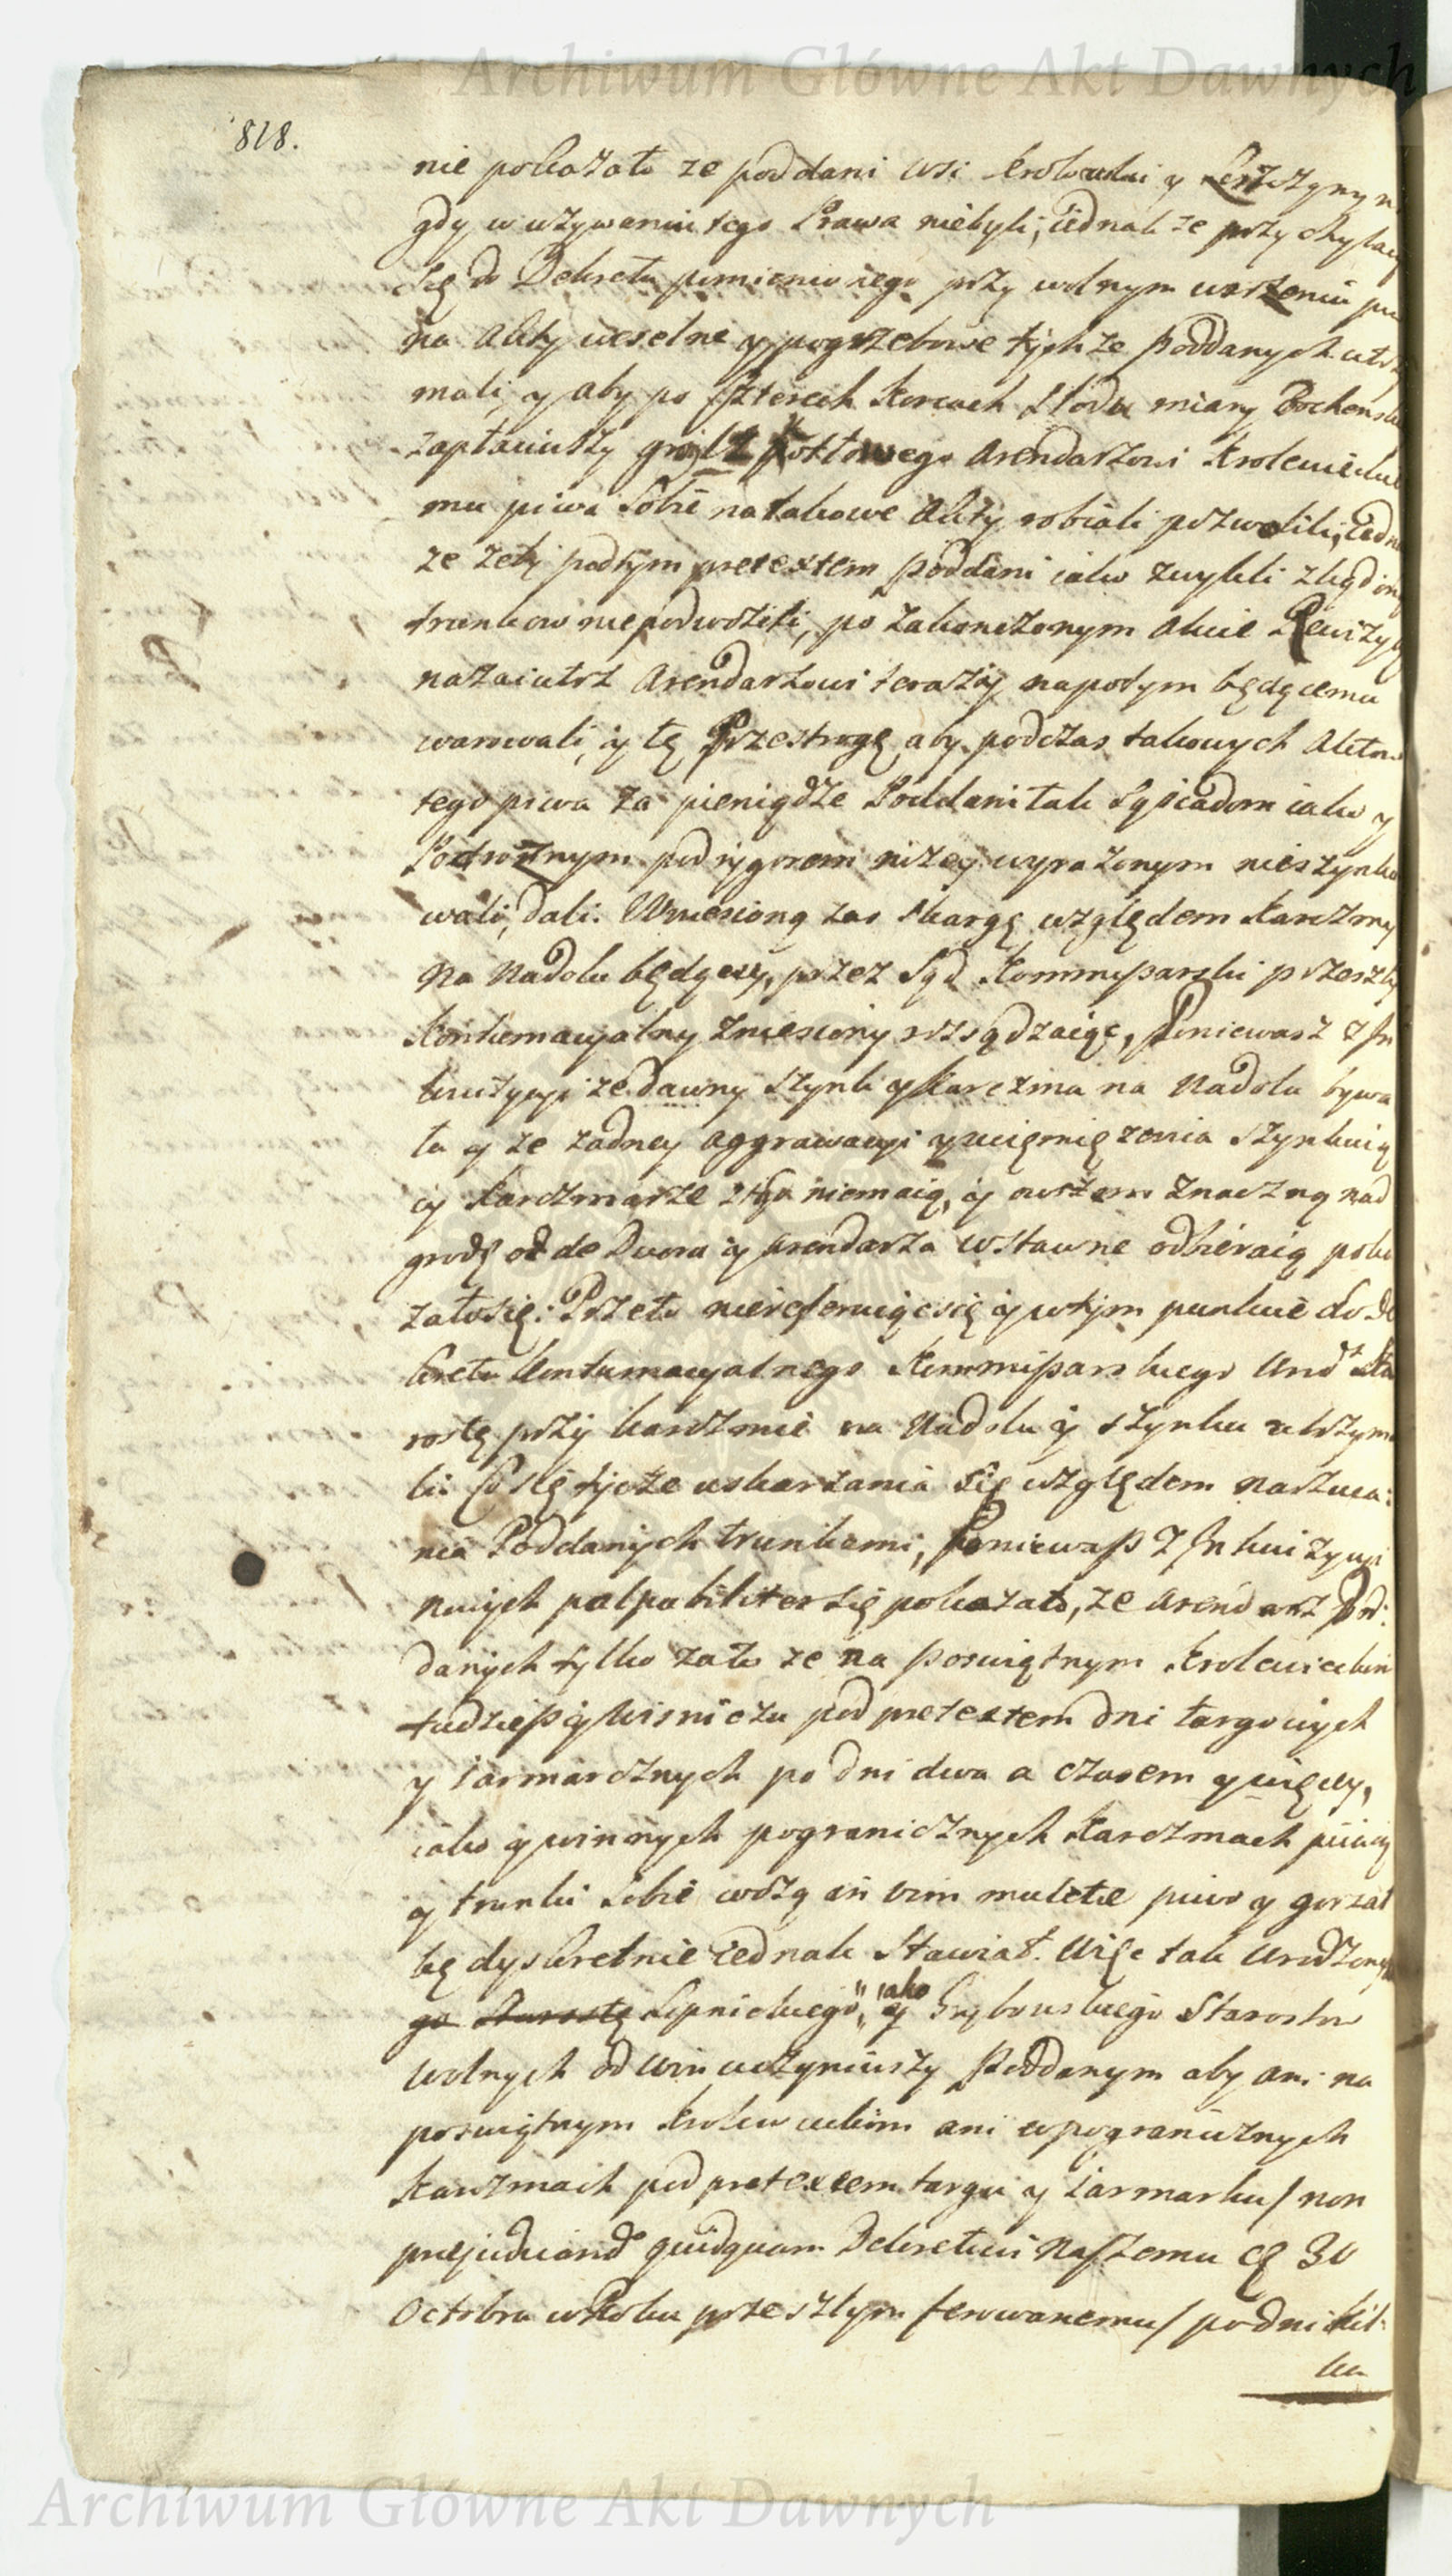 Archiwum Główne Akt Dawnych
818.
nie pokazało ze poddani wsi krolowki y Leszczyny n
gdy w uzywaniu tego Prawa niebyli, iednak ze przychylaiąc
się do Dekretu pomienionego przy wolnym warzeniu piw
na Akty weselne y pogrzebowe tychze Poddanych utrzy
mali, y aby po czterech korcach słodu miary Bochenski
zapłaciwszy grosz kotłowego Arendarzowi krolewieckie
mu piwa sobie na takowe Akty robiali pozwolili, iedna
ze zeby pod tym pretextem poddani iako zwykli zkąd inąd
trunkow niepodwozili, po zakonczonym Akcie Rewizyą
nazaiutrz Arendarzowi teraz y napotym będącemu
warowali, y tę Przestrogę aby podczas takowych Aktow
tego piwa za pieniądze Poddani tak Sąsiadom iako y
Podroznym pod rygorem nizey wyrazonym nieszynko
wali, dali. Wniesioną zas skargę względem karczmy
na Nadolu będącey, przez Sąd Kommissarski przeszły
kontumacyalny zniesiony rozsądzaiąc, Poniewasz z In
kwizycyi ze dawny szynk y karczma na Nadolu bywa
ła y ze zadney aggrawacyi y uciemięzenia szynkuią
cy karczmarze z tego niemaią, y owszem znaczną nad
grodę ode Dwora y Arendarza w stawne odbieraią poka
załosię: Przeto niereferuiącsię y w tym punkcie do De
kretu kontumacyalnego Kommissarskiego Urod Sta
rostę przy karczmie na Nadolu y szynku utrzyma
li. Co się tycze uskarzania się względem narzuca:
nia Poddanych trunkami, Poniewasz z Inkwizycyi
naszych palpabiliter się pokazało, ze Arendarz Pod:
danych tylko zato ze na poswiętnym krolewieckim
tudziesz y Wisniczu pod pretextem dni targowych
y iarmarcznych po dni dwa a czasem y więcey,
iako y w innych pogranicznych karczmach piiaią
y trunki sobie wozą in vim mulctæ piwo y gorzał
kę dyskretnie iednak stawiał. Więc tak Urodzony
go Starostę Lipnickiego, iako y Grybowskiego Starostow
wolnych od win uczyniwszy Poddanym aby ani na
poswiętnym krolowieckim ani w pogranicznych
karczmach pod pretextem targu y iarmarku / non
præjudicando quidquam Dekretowi Naszemu 30
Octobra w Roku przeszłym ferowanemu / po dni kil:
ku
Archiwum Główne Akt Dawnych